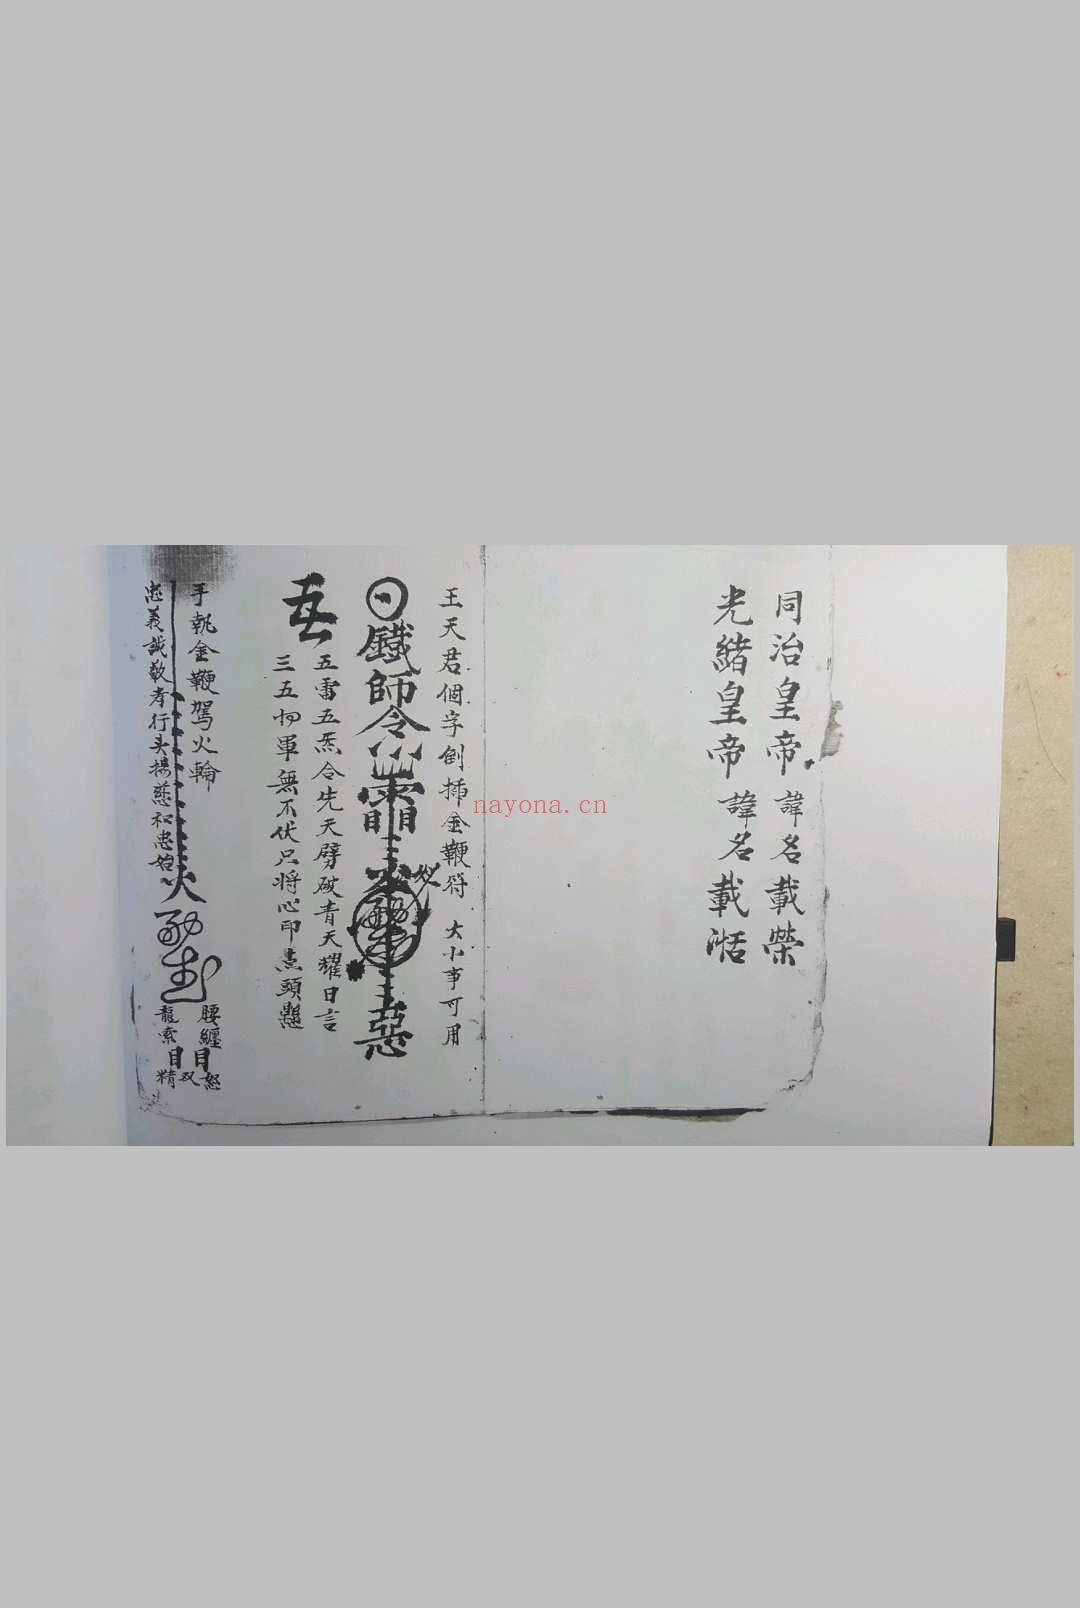 同治皇帝諱名載榮
光緒皇帝諱名載湉
王天君個字倒插金鞭符 大小事可用
鐵師令
火
惡
五雷五炁令先天劈破青天耀日言
三五 軍無不伏只將心印点頭
手執金鞭駕火輪
火
忠義誠敬孝行头揚慈和忠始
腰纏
龍索
目目
怒双精
nayona.cn